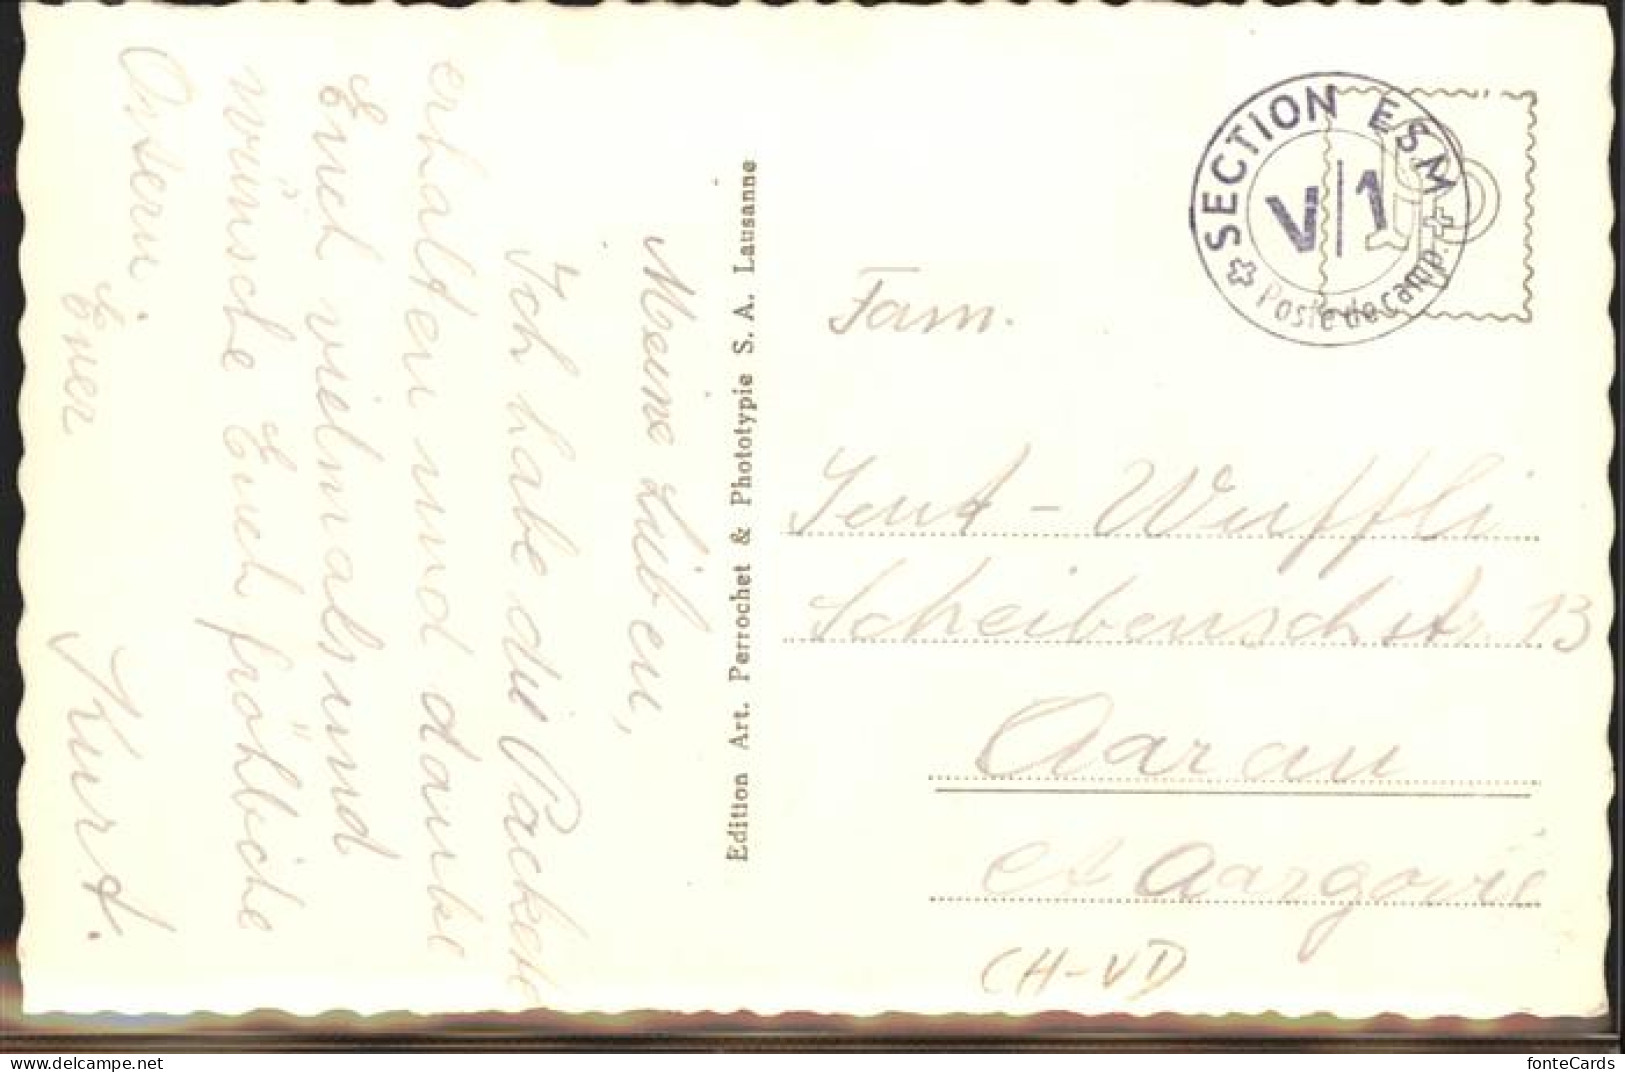 Meine Lieben,
Ich habe die Packete
erhalten und danke
Euch vielmals und
wünsche Euch fröhliche
Ostern.
Euer
Kurt.
Edition Art. Perrochet & Phototypie S. A. Lausanne
SECTION ESM
V/1
Poste de camp.
Fam.
Jent - Wuffli
Scheibenschstr. 13
Aarau
Ct Aargovie
CH-VD
delcampe.net
fonteCards